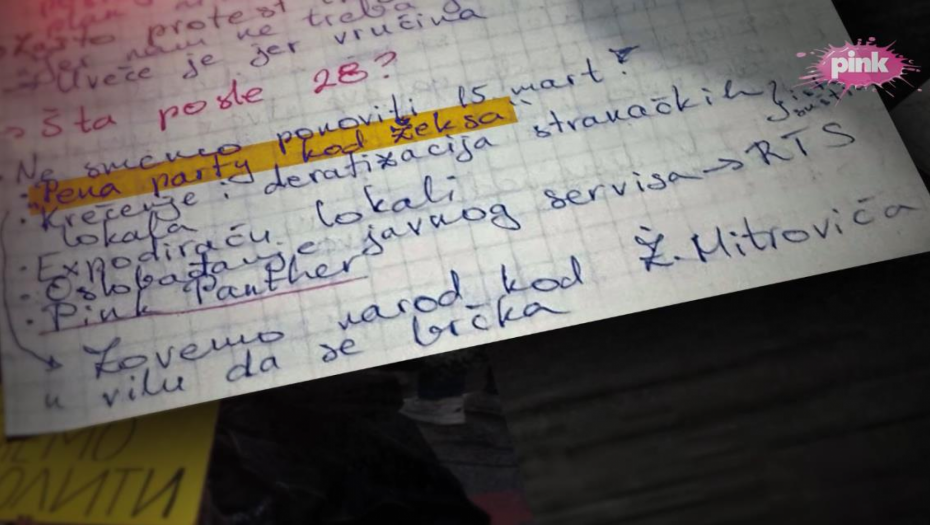 zašto protest
Jer nam ne treba
Uveče je jer vrućina
Šta posle 28?
Ne smemo ponoviti 15 mart!
Pena party kod žeksa
Krečenje i deratizacija stranačkih
lokala
Expodiraću lokali
Oslobađanje javnog servisa → RTS
Pink Panther
Zovemo narod kod Ž. Mitrovića
u vilu da se brčka
pink
ЕМО
ОЛИТИ